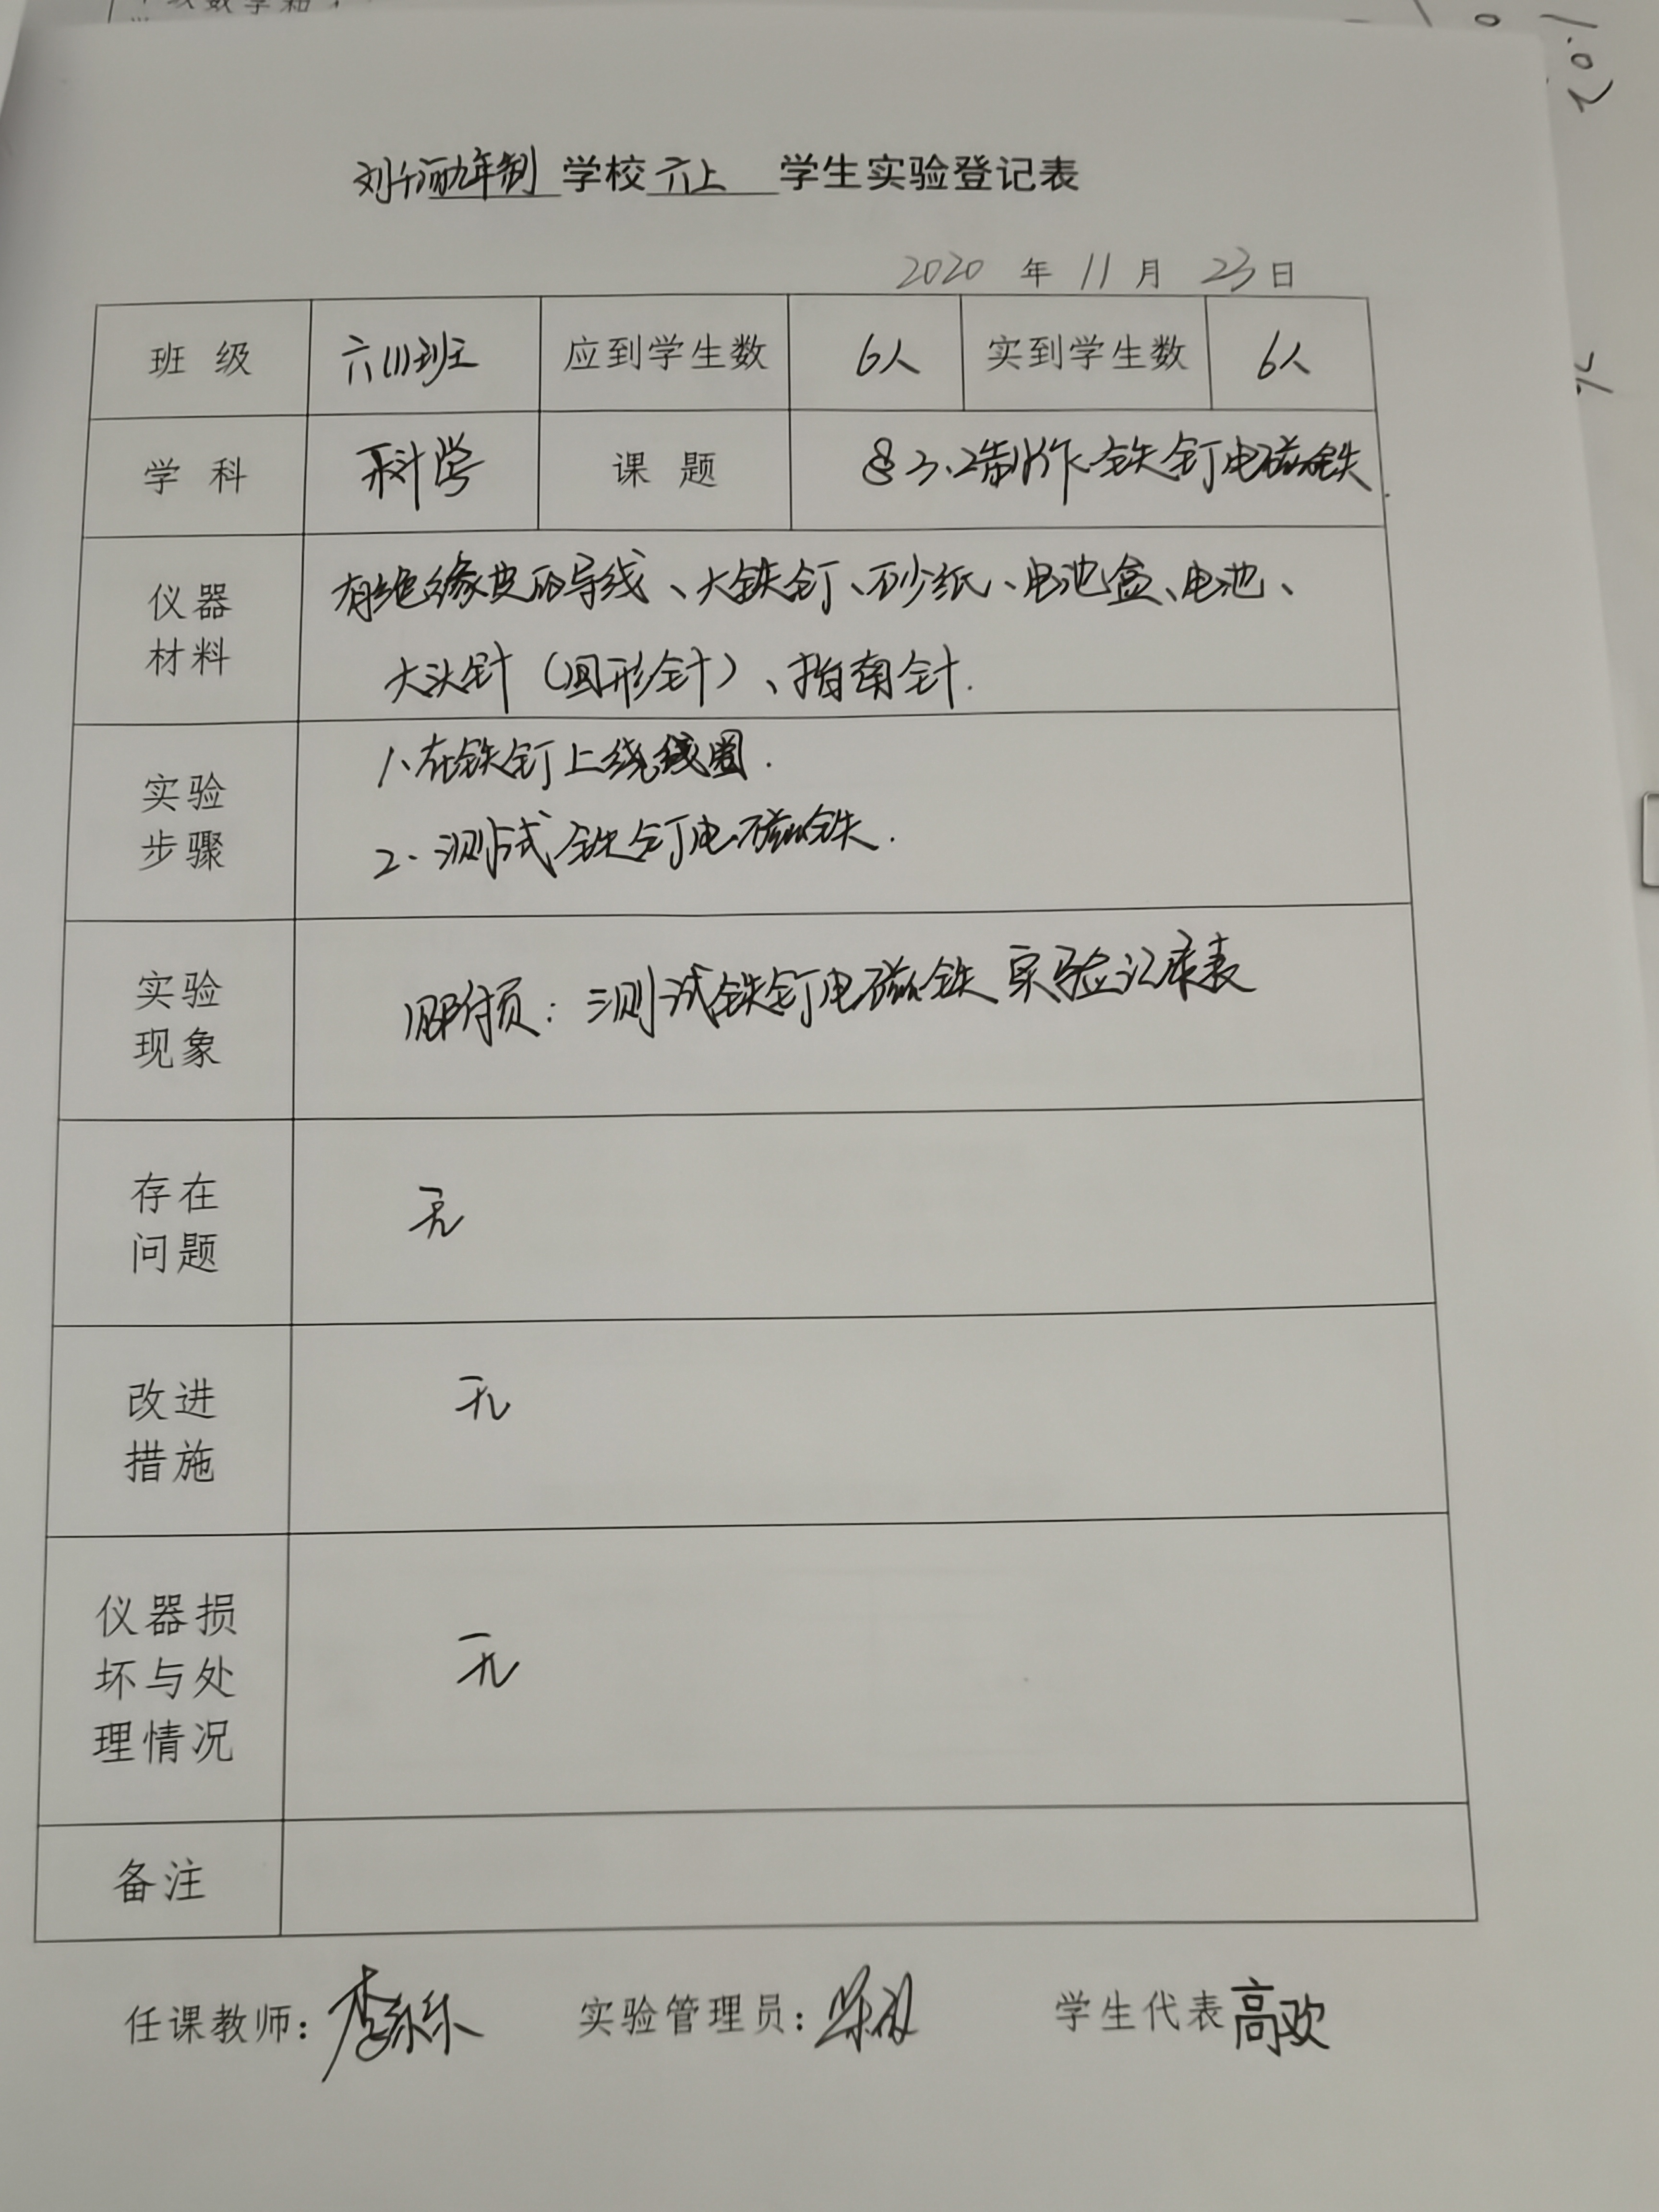 九年制学校六上 学生实验登记表
2020 年 11 月 23 日
班 级 六(1)班 应到学生数 6人 实到学生数 6人
学 科 科学 课 题 3.2制作铁钉电磁铁.
仪器
材料
有绝缘皮的导线、大铁钉、砂纸、电池盒、电池、
大头针（回形针）、指南针.
实验
步骤
1、在铁钉上绕线圈.
2、测试铁钉电磁铁.
实验
现象
附页：测试铁钉电磁铁实验记录表
存在
问题
无
改进
措施
无
仪器损
坏与处
理情况
无
备注
任课教师： 实验管理员： 学生代表 高欢